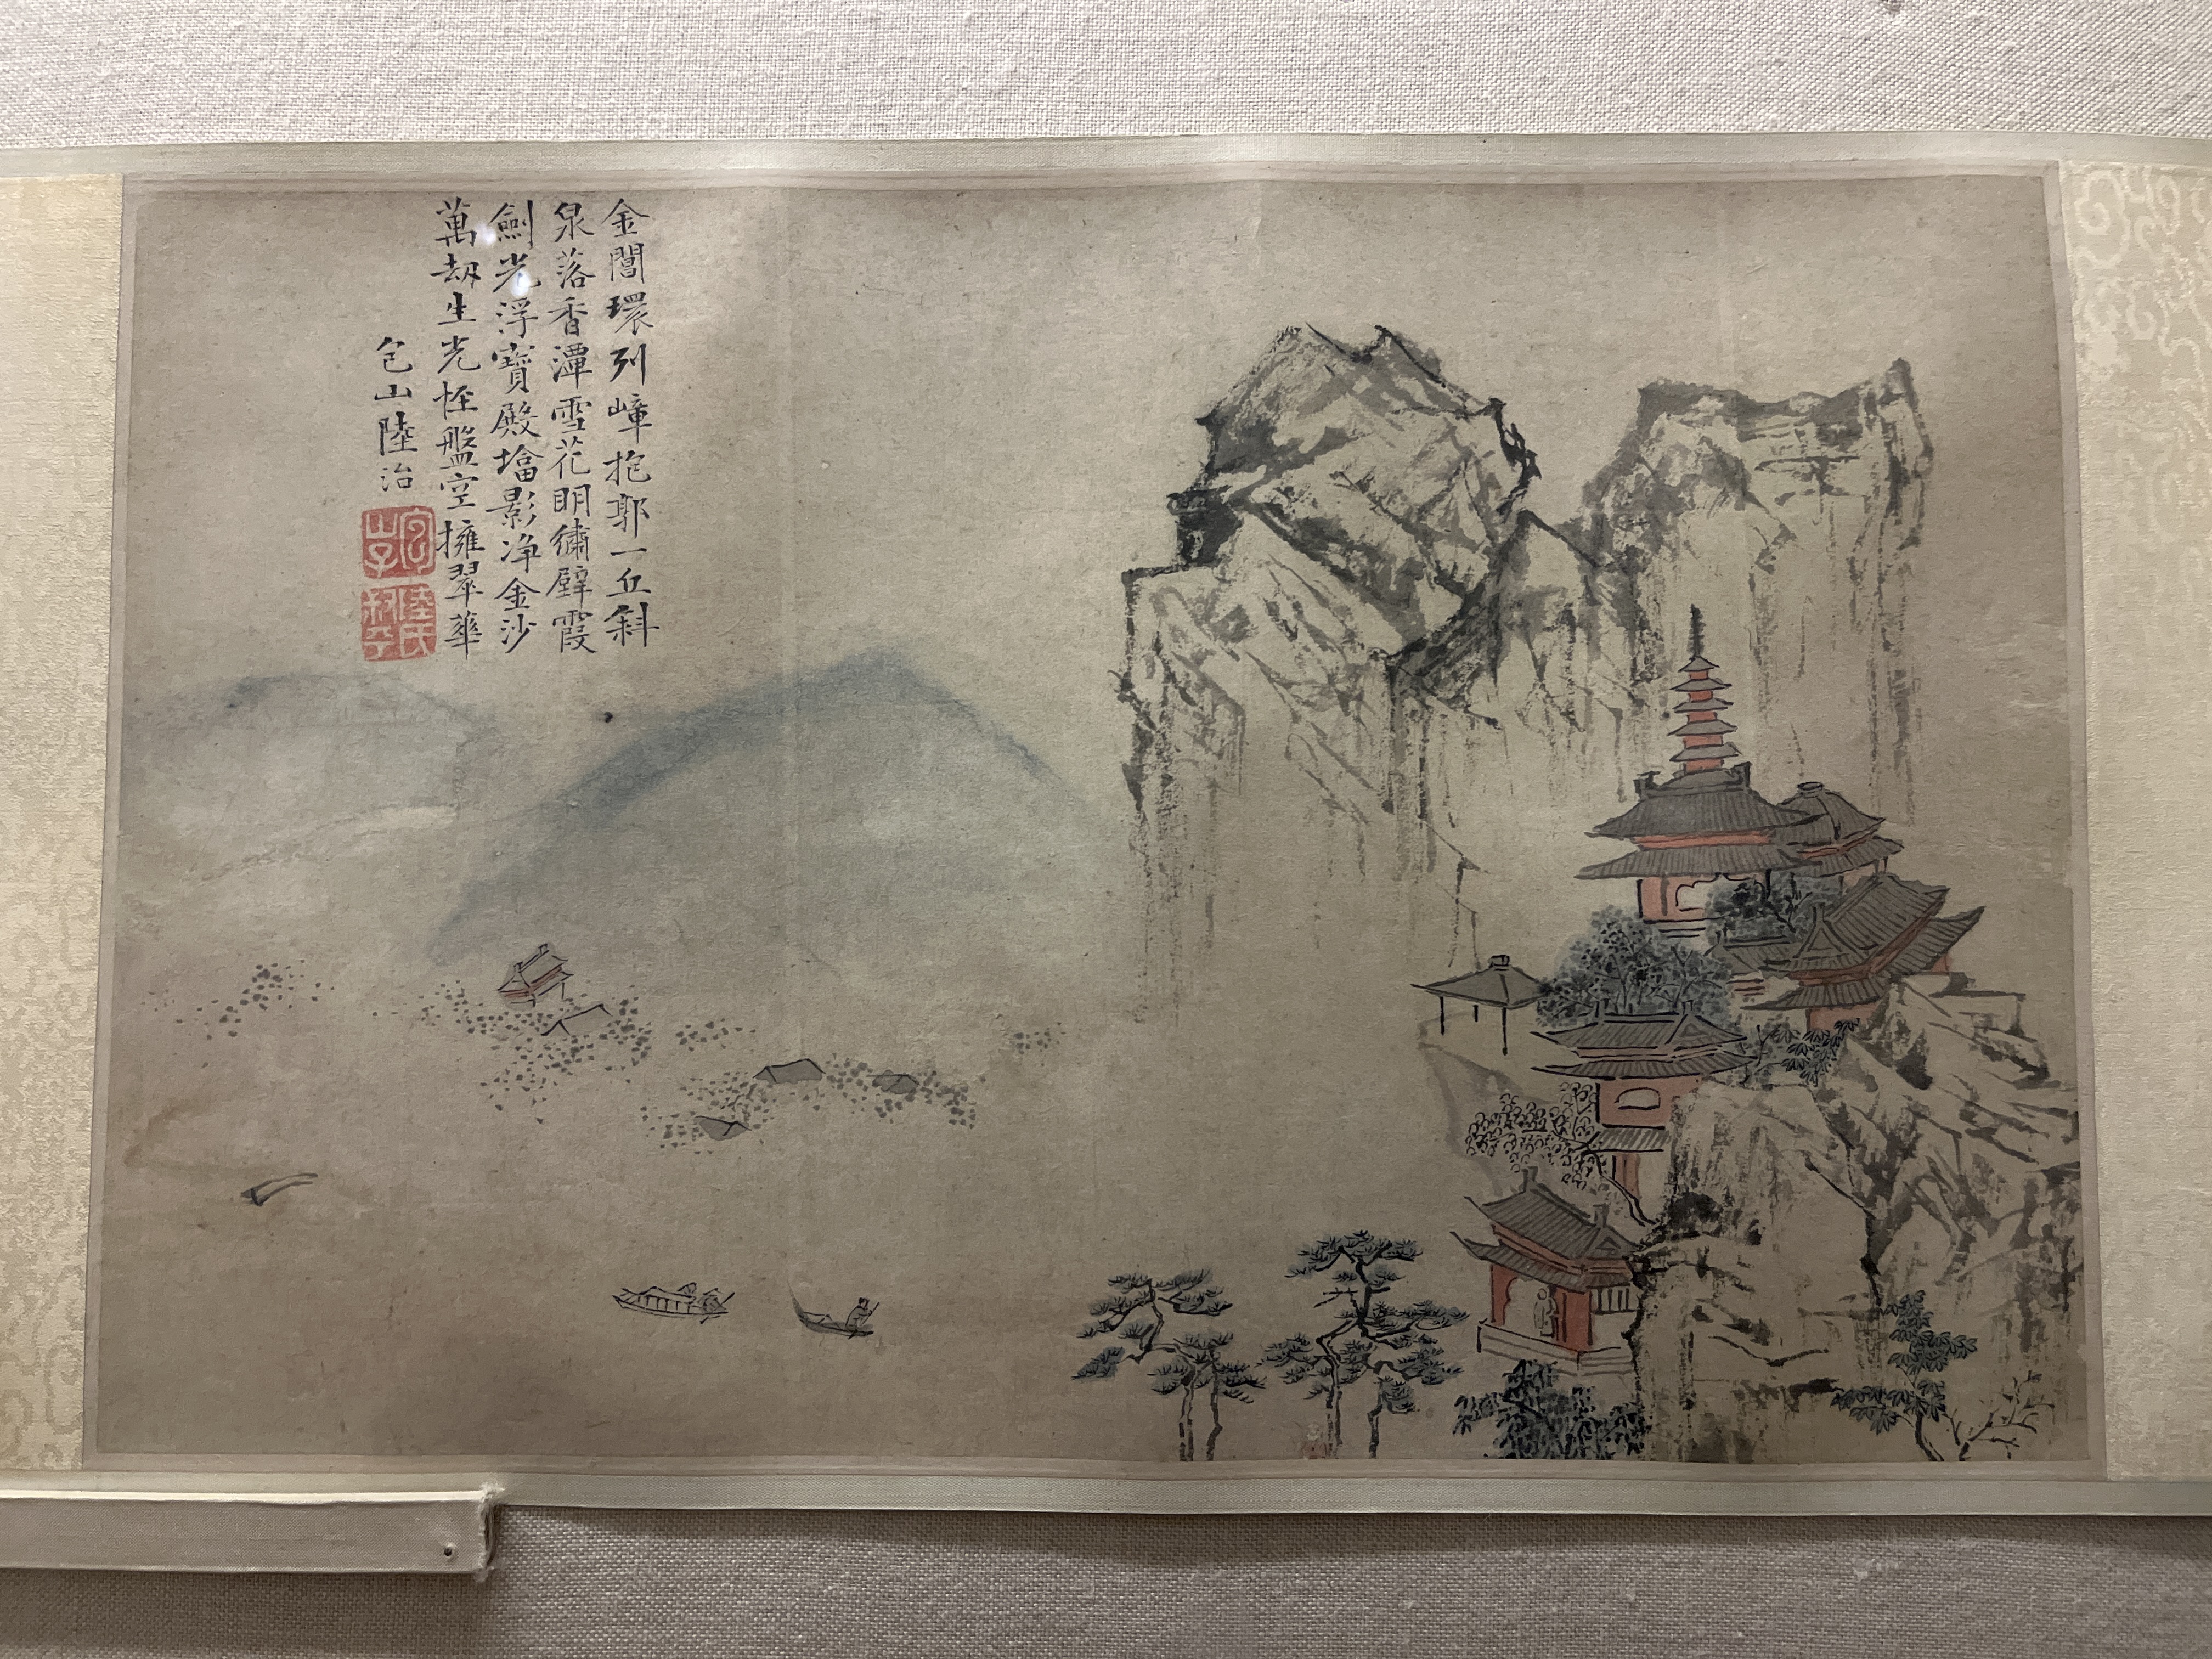 金閶環列嶂抱郭一丘斜
泉浴香潭雪花明繡壁霞
劍光浮寶殿檜影淨金沙
萬劫生光怪盤空擁翠華
包山陸治
包山子
陸氏叔平